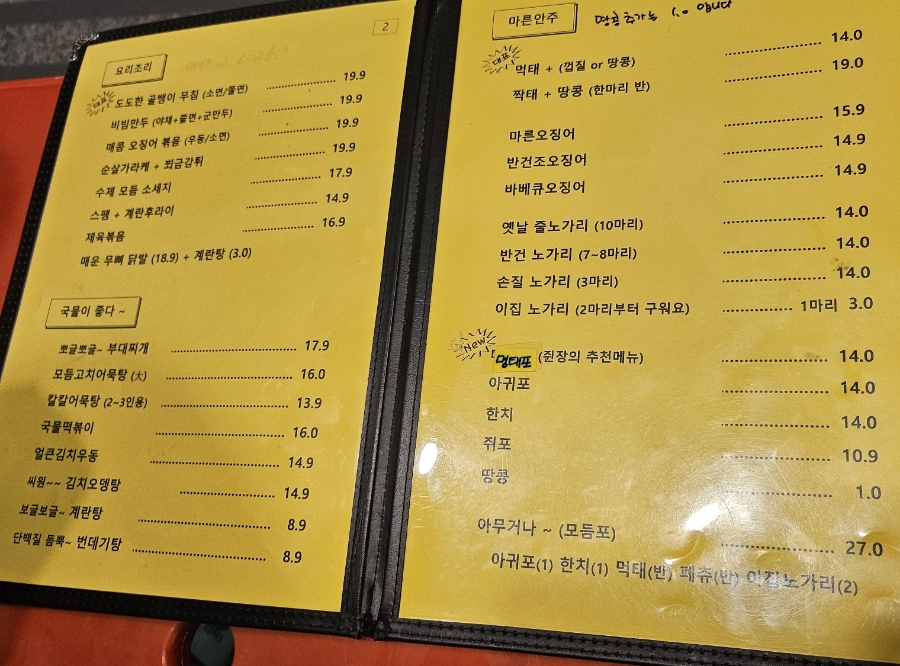 2
요리조리
대표
도도한 골뱅이 무침 (소면/쫄면) 19.9
비빔만두 (야채+쫄면+군만두) 19.9
매콤 오징어 볶음 (우동/소면) 19.9
순살가라케 + 쬐금감튀 19.9
수제 모듬 소세지 17.9
스팸 + 계란후라이 14.9
제육볶음 16.9
매운 무뼈 닭발 (18.9) + 계란탕 (3.0)
국물이 좋다 ~
뽀글뽀글~ 부대찌개 17.9
모듬고치어묵탕 (大) 16.0
칼칼어묵탕 (2~3인용) 13.9
국물떡볶이 16.0
얼큰김치우동 14.9
씨원~~ 김치오뎅탕 14.9
보글보글~ 계란탕 8.9
단백질 듬뿍~ 번데기탕 8.9
마른안주 땅콩추가는 1.0 입니다
대표
먹태 + (껍질 or 땅콩) 14.0
짝태 + 땅콩 (한마리 반) 19.0
마른오징어 15.9
반건조오징어 14.9
바베큐오징어 14.9
옛날 줄노가리 (10마리) 14.0
반건 노가리 (7~8마리) 14.0
손질 노가리 (3마리) 14.0
이집 노가리 (2마리부터 구워요) 1마리 3.0
New
명태포 (쥔장의 추천메뉴) 14.0
아귀포 14.0
한치 14.0
쥐포 10.9
땅콩 1.0
아무거나 ~ (모듬포) 27.0
아귀포(1) 한치(1) 먹태(반) 페츄(반) 이집노가리(2)